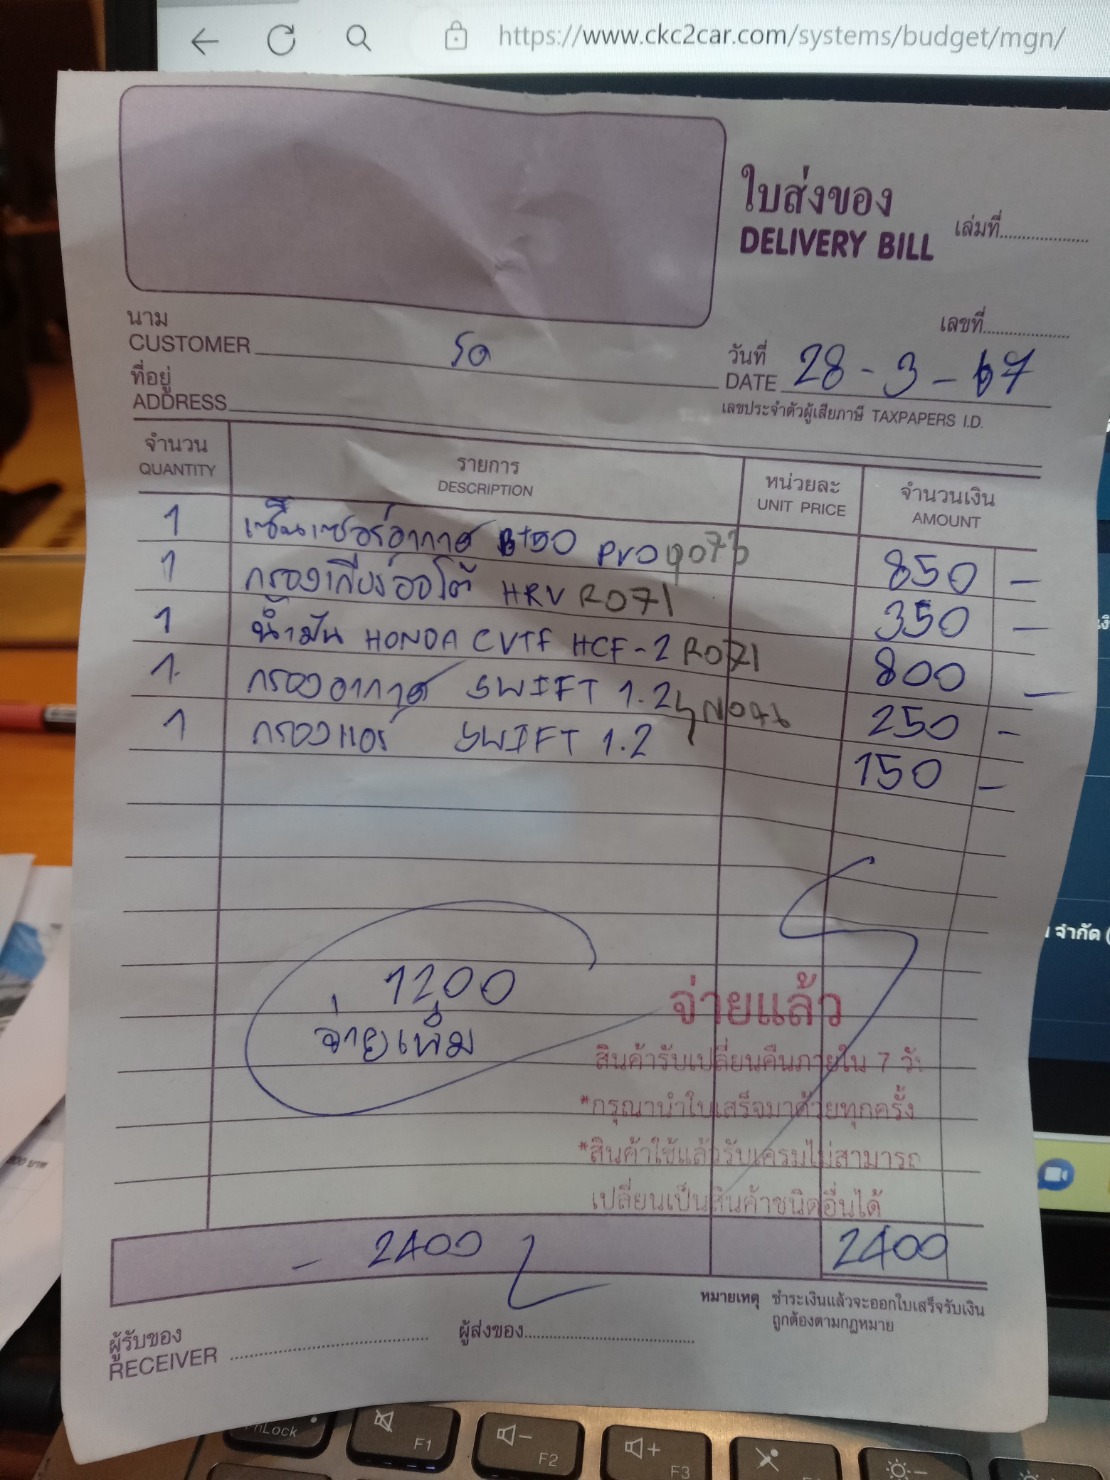 https://www.ckc2car.com/systems/budget/mgn/
ใบส่งของ
DELIVERY BILL
เล่มที่
เลขที่
นาม
CUSTOMER
สด
วันที่
DATE 28-3-67
ที่อยู่
ADDRESS
เลขประจำตัวผู้เสียภาษี TAXPAPERS I.D.
จำนวน รายการ หน่วยละ จำนวนเงิน
QUANTITY DESCRIPTION UNIT PRICE AMOUNT
1 เซ็นเซอร์อากาศ BT50 PRO 850 -
1 กรองเกียร์ออโต้ HRV R071 350 -
1 น้ำมัน HONDA CVTF HCF-2 R071 800 -
1 กรองอากาศ SWIFT 1.2 250 -
1 กรองแอร์ SWIFT 1.2 150 -
1200
จ่ายเพิ่ม
จ่ายแล้ว
สินค้ารับเปลี่ยนคืนภายใน 7 วัน
*กรุณานำใบเสร็จมาด้วยทุกครั้ง
*สินค้าใช้แล้วรับเครมไม่สามารถ
เปลี่ยนเป็นสินค้าชนิดอื่นได้
- 2400 2400
หมายเหตุ ชำระเงินแล้วจะออกใบเสร็จรับเงิน
ถูกต้องตามกฎหมาย
ผู้รับของ
RECEIVER
ผู้ส่งของ
จำกัด (
800 บาท
F1
F2
F3